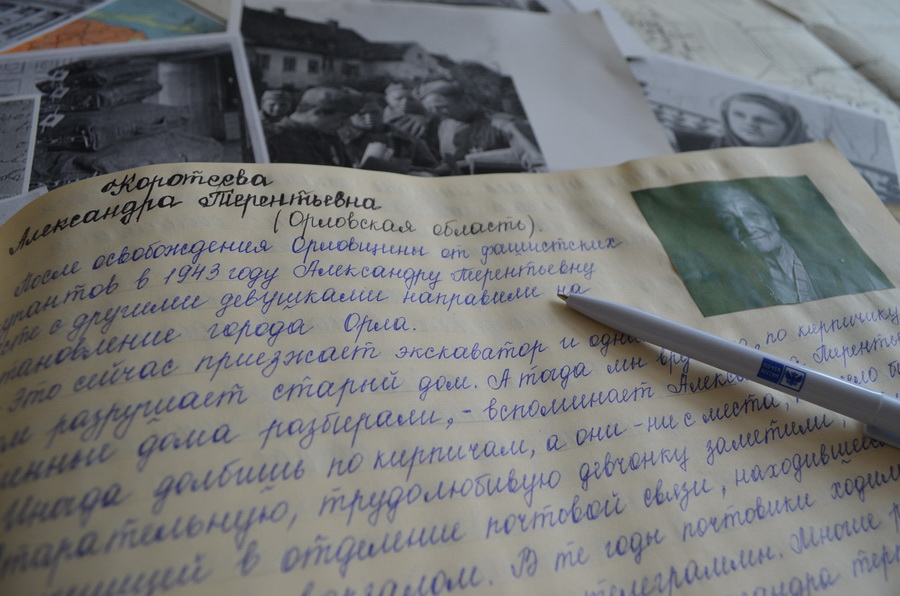 Коротеева
Александра Терентьевна
(Орловская область).
После освобождения Орловщины от фашистских
упантов в 1943 году Александру Терентьевну
сте с другими девушками направили на
тановление города Орла.
Это сейчас приезжает экскаватор и одни
ом разрушает старый дом. А тогда мы вру по кирпичику
инные дома разбирали, - вспоминает Алекса Теренть
Иногда долбишь по кирпичам, а они - ни с места,
Старательную, трудолюбивую девчонку заметили,
ницей в отделение почтовой связи, находившее
вокзалом. В те годы почтовики ходил
телеграммы. Многие
сандра Тер